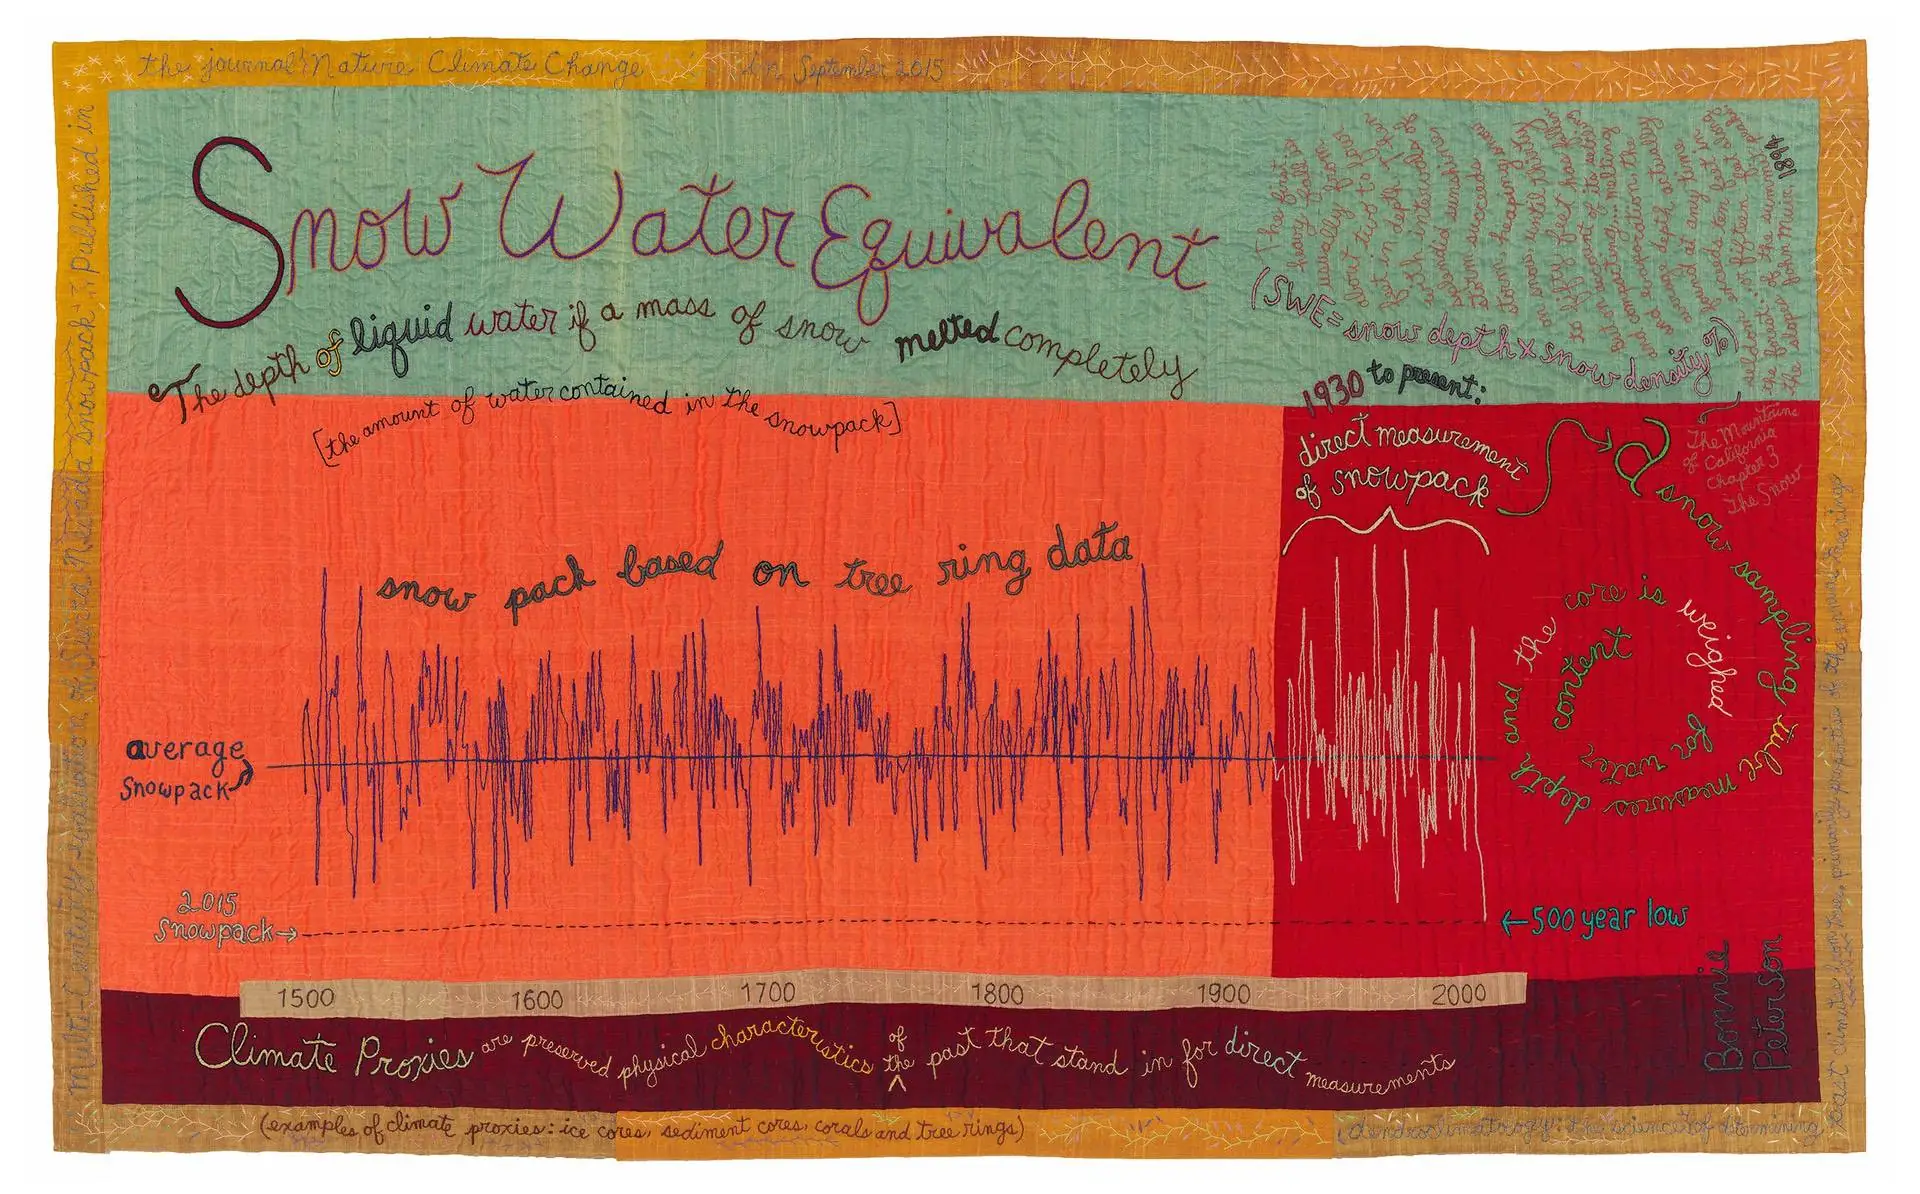 the journal Nature Climate Change in September 2015
Multi-Century Evaluation of Sierra Nevada snowpack" Published in
Snow Water Equivalent
The depth of liquid water if a mass of snow melted completely
[the amount of water contained in the snowpack]
The first
heavy fall is
usually from
about two to four
feet in depth. Then
with intervals of
splendid sunshine
storm succeeds
storm, heaping snow
on snow, until thirty
to fifty feet has fallen
But on account of its settling
and compacting... melting
and evaporation, the
average depth actually
found at any time
seldom exceeds ten feet in
the forest... or fifteen feet along
the slopes of the summit peaks
John Muir, 1894
The Mountains
of California
Chapter 3
The Snow
(SWE = snow depth x snow density %)
1930 to present:
direct measurement
of snowpack
a snow sampling tube measures depth and the core is weighed for water content
snow pack based on tree ring data
average
snowpack
2015
snowpack
500 year low
1500 1600 1700 1800 1900 2000
Climate Proxies are preserved physical characteristics of the past that stand in for direct measurements
Bonnie
Peterson
(examples of climate proxies: ice cores, sediment cores, corals and tree rings)
(dendroclimatology: the science of determining
past climates from trees, primarily properties of the annual tree rings